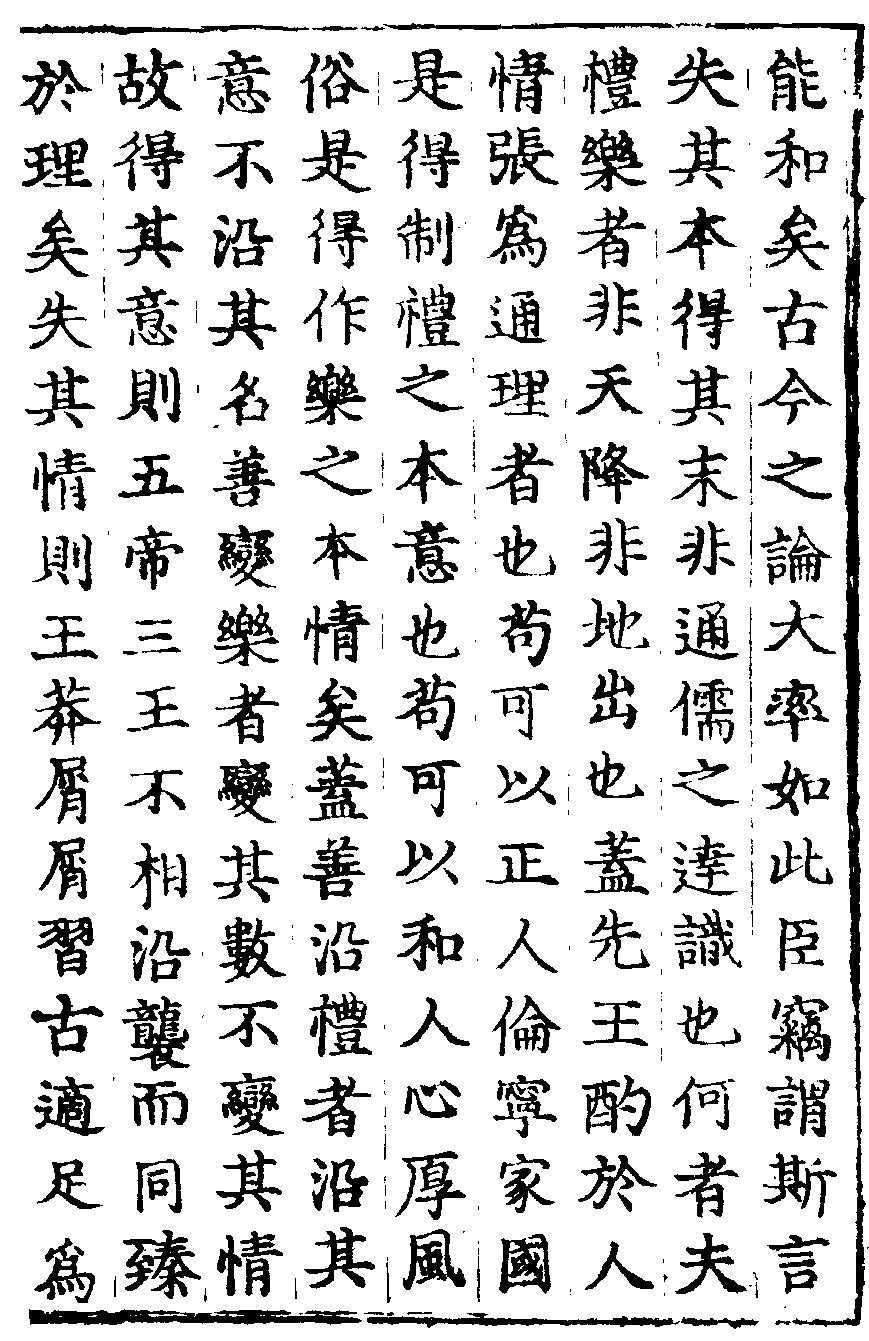 能和矣古今之論大率如此臣竊謂斯言
失其本得其末非通儒之達識也何者夫
禮樂者非天降非地出也蓋先王酌於人
情張爲通理者也苟可以正人倫寧家國
是得制禮之本意也苟可以和人心厚風
俗是得作樂之本情矣蓋善沿禮者沿其
意不沿其名善變樂者變其數不變其情
故得其意則五帝三王不相沿襲而同臻
於理矣失其情則王莽屑屑習古適足爲